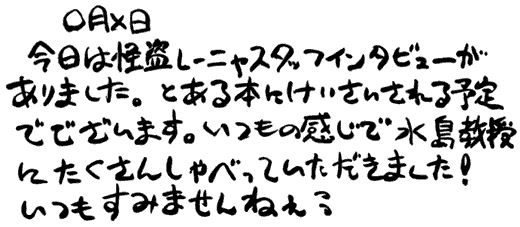 〇月×日
今日は怪盗レーニャスタッフインタビューが
ありました。とある本にけいさいされる予定
でございます。いつもの感じで水島教授
にたくさんしゃべっていただきました!
いつもすみませんねぇ